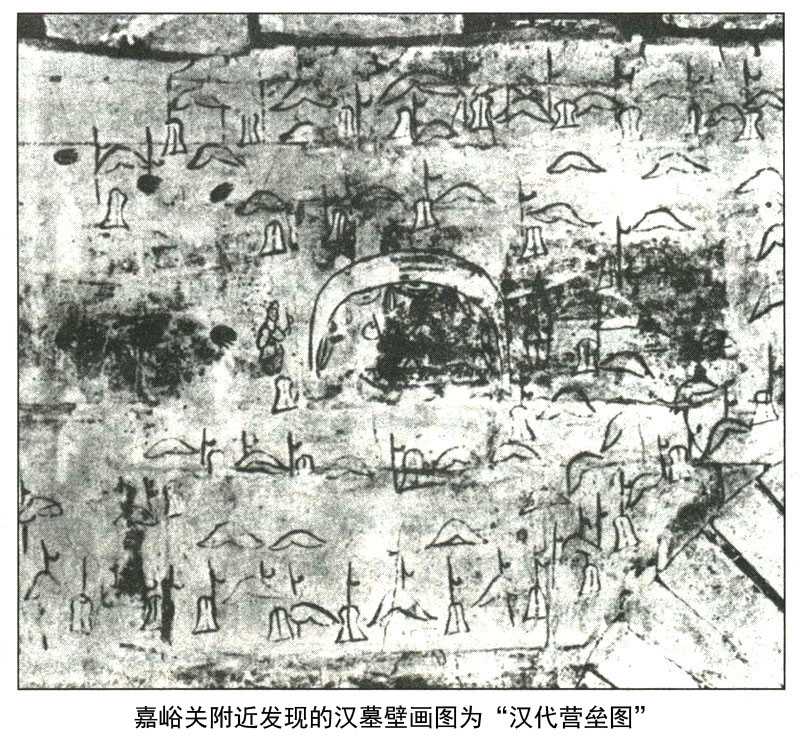 嘉峪关附近发现的汉墓壁画图为“汉代营垒图”